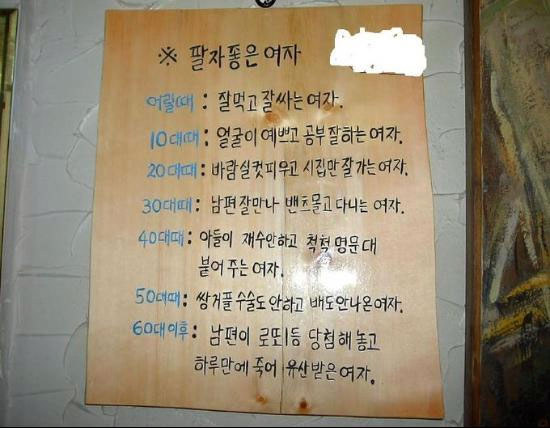 ※ 팔자좋은여자
어릴때 : 잘먹고 잘싸는여자.
10대때 : 얼굴이 예쁘고 공부잘하는여자.
20대때 : 바람실컷피우고 시집만잘가는여자.
30대때 : 남편잘만나 밴츠몰고 다니는여자.
40대때 : 아들이 재수안하고 척척 명문대
붙어 주는여자.
50대때 : 쌍거풀수술도안하고 배도안나온여자.
60대이후 : 남편이 로또1등 당첨해 놓고
하루만에 죽어 유산받은여자.